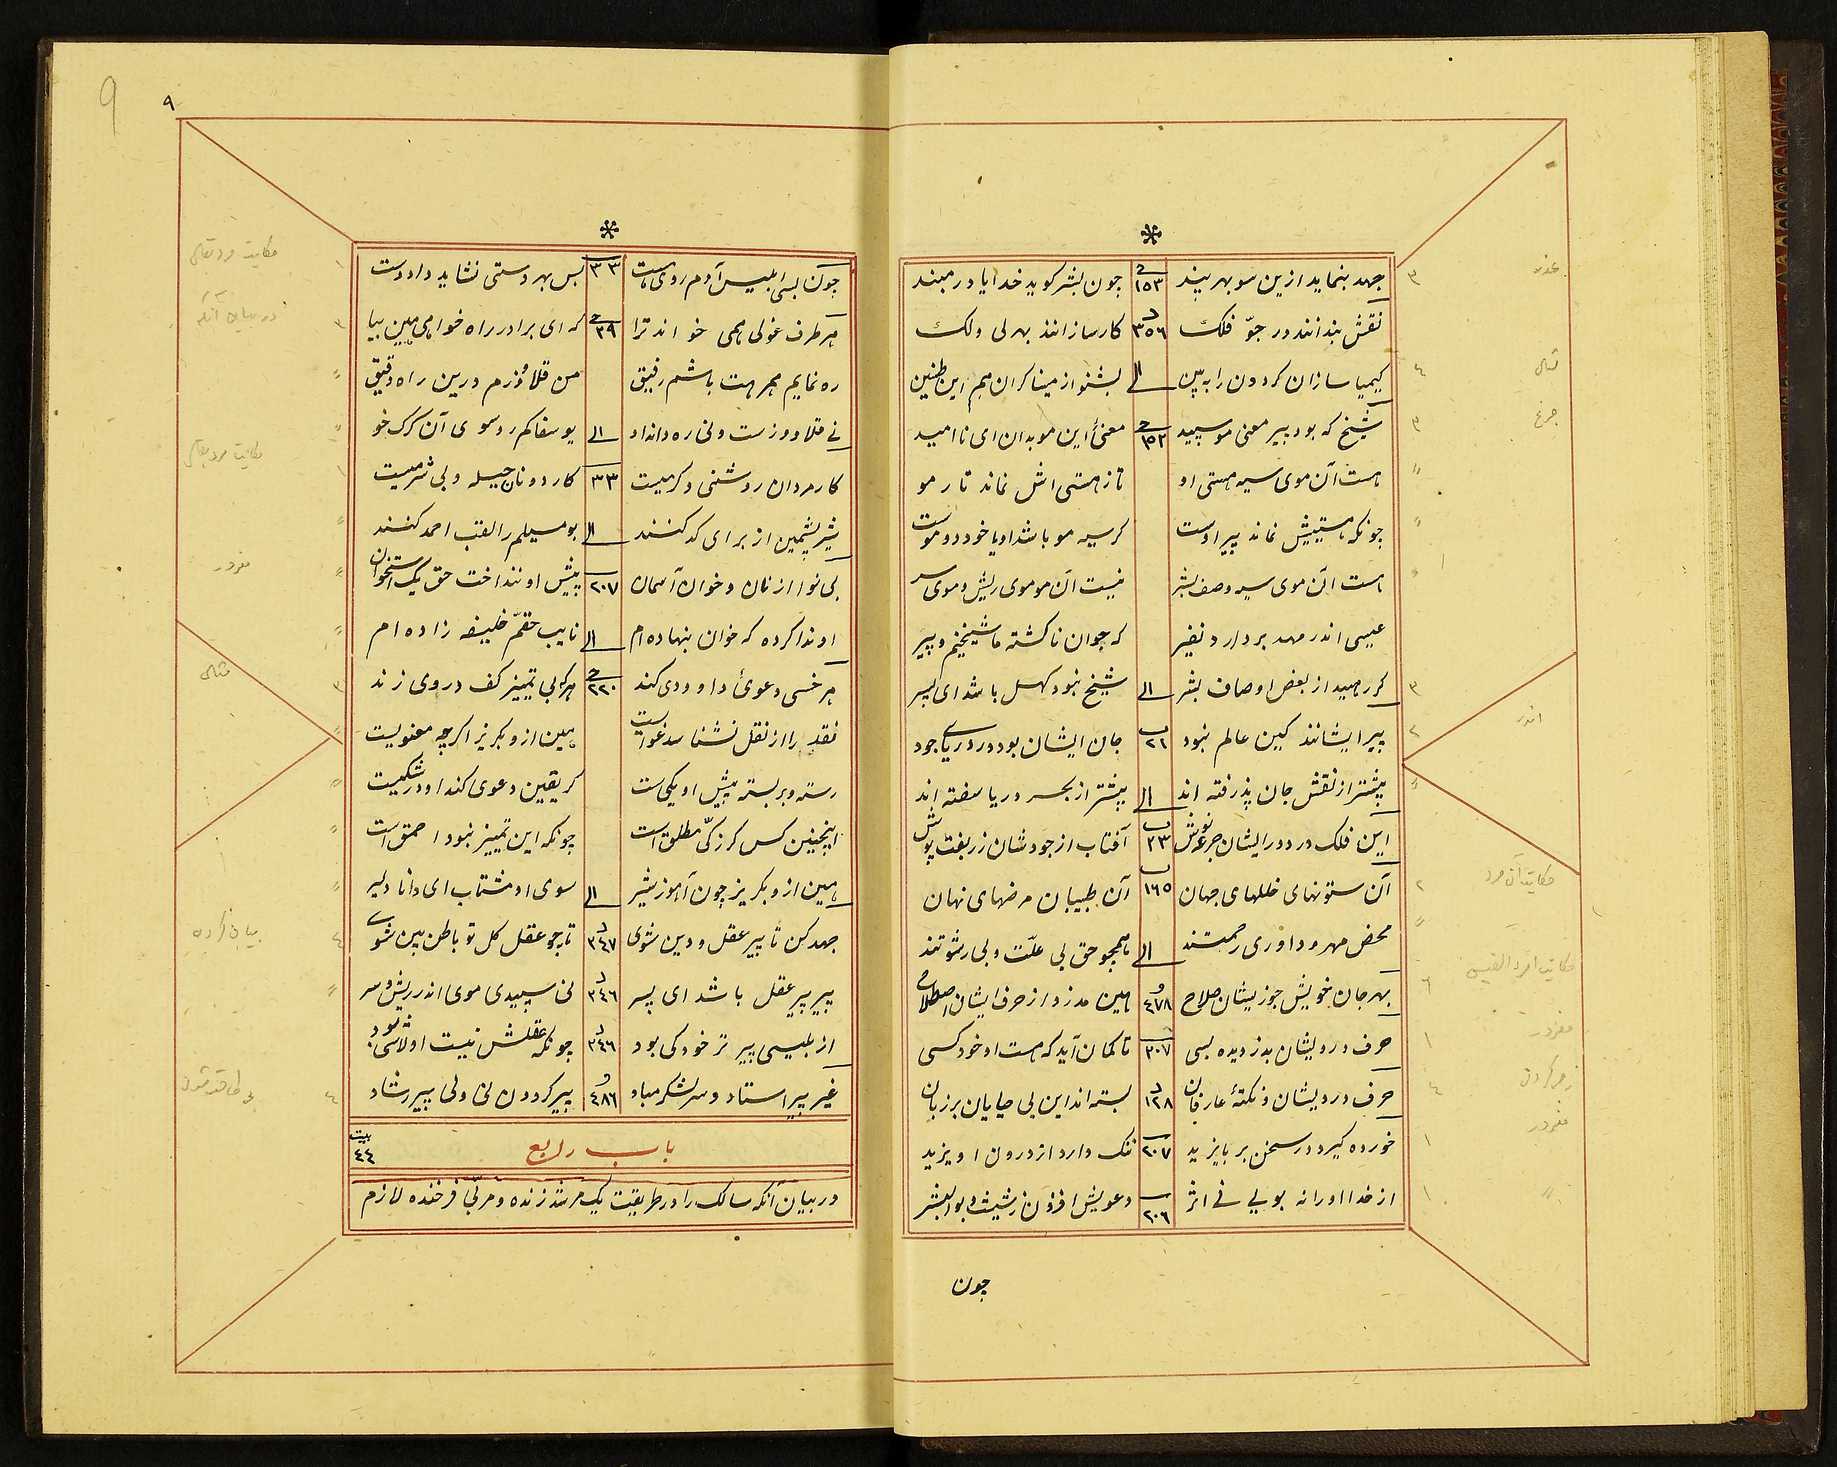 جهد بنماید ازین سو بهر پند ح ١٥٣ چون بشر کوید خدایا در مبند
نقش بندانند در جوّ فلک د ٣٥٦ کارسازانند بهر لی ولک
کیمیا سازان کردون را ببین الی بشنو از میناکران هر دم طنین
شیخ که بود پیر معنی مو سپید ح ١٥٢ معنئ این مو بدان ای نا امید
هست آن موی سیه هستی او تا ز هستی اش نماند تار مو
چونکه هستیش نماند پیر اوست کر سیه مو باشد او یا خود دو موست
هست آن موی سیه وصف بشر نیست آن مو موی ریش و موی سر
عیسی اندر مهد بردارد نفیر که جوان ناکشته ما شیخیم و پیر
کر رهید از بعض اوصاف بشر الی شیخ نبود کهل باشد ای پسر
پیر ایشانند کین عالم نبود ب ٢١ جان ایشان بود در دریای جود
پیشتر از نقش جان پذرفته اند الی پیشتر از بحر دریا سفته اند
این فلک در دور ایشان جرعه نوش ب ٢٣ آفتاب از جودشان زربفت پوش
آن ستونهای خللهای جهان ب ١٦٥ آن طبیبان مرضهای نهان
محض مهر و داوری رحمتند الی همچو حق بی علّت و بی رشوتند
بهر جان خویش جو زیشان صلاح و ٤٧٨ هین مدزد از حرف ایشان اصطلاح
حرف درویشان بدزدیده بسی ٣٠٧ تا کمان آید که هست او خود کسی
حرف درویشان و نکتهٔ عارفان د ١٢٨ بسته اند این بی حیایان بر زبان
خورده کیرد در سخن بر بایزید ٢٠٧ ننک دارد از درون او یزید
از خدا او را نه بویی نی اثر ٢٠٦ دعویش افزون ز شیث و بو البشر
چون
٩
9
چون بسی ابلیس آدم روی هست ٣٣ پس بهر دستی نشاید داد دست
هر طرف غولی همی خواند ترا ح ٣٩ که ای برادر راه خواهی هین بیا
ره نمایم همرهت باشم رفیق من قلاوزم درین راه دقیق
نی قلاووزست و نی ره داند او الی یوسفا کم رو سوی آن کرک خو
کار مردان روشنی و کرمیست ٣٣ کار دونان حیله و بی شرمیست
شیر پشمین از برای کد کنند الی بو مسیلم را لقب احمد کنند
بی نوا از نان و خوان آسمان ٢٠٧ پیش او ننداخت حق یک استخوان
او ندا کرده که خوان بنهاده ام الی نایب حقم خلیفه زاده ام
هر خسی دعوئ داوودی کند ح ٢٢٠ هرکه بی تمییز کف در وی زند
نقد را از نقل نشناسد غویست هین ازو بکریز اکرچه معنویست
رسته و بربسته پیش او یکیست کر یقین دعوی کند او در شکیست
اینچنین کس کر زکیّ مطلق است چونکه این تمییز نبود احمق است
هین ازو بکریز چون آهو ز شیر الی سوی او مشتاب ای دانا دلیر
جهد کن تا پیر عقل و دین شوی د ٣٤٧ تا چو عقل کل تو باطن بین شوی
پیر پیر عقل باشد ای پسر د ٣٤٦ نی سپیدی موی اندر ریش و سر
از بلیسی پیر تر خود کی بود د ٣٤٦ چونکه عقلش نیست او لاشی بود
غیر پیر استاد و سرلشکر مباد و ٤٨٦ پیر کردون نی ولی پیر رشاد
باب رابع
بیت ٤٤
در بیان آنکه سالک را در طریقت یک مرشد زنده و مربّی فرخنده لازم